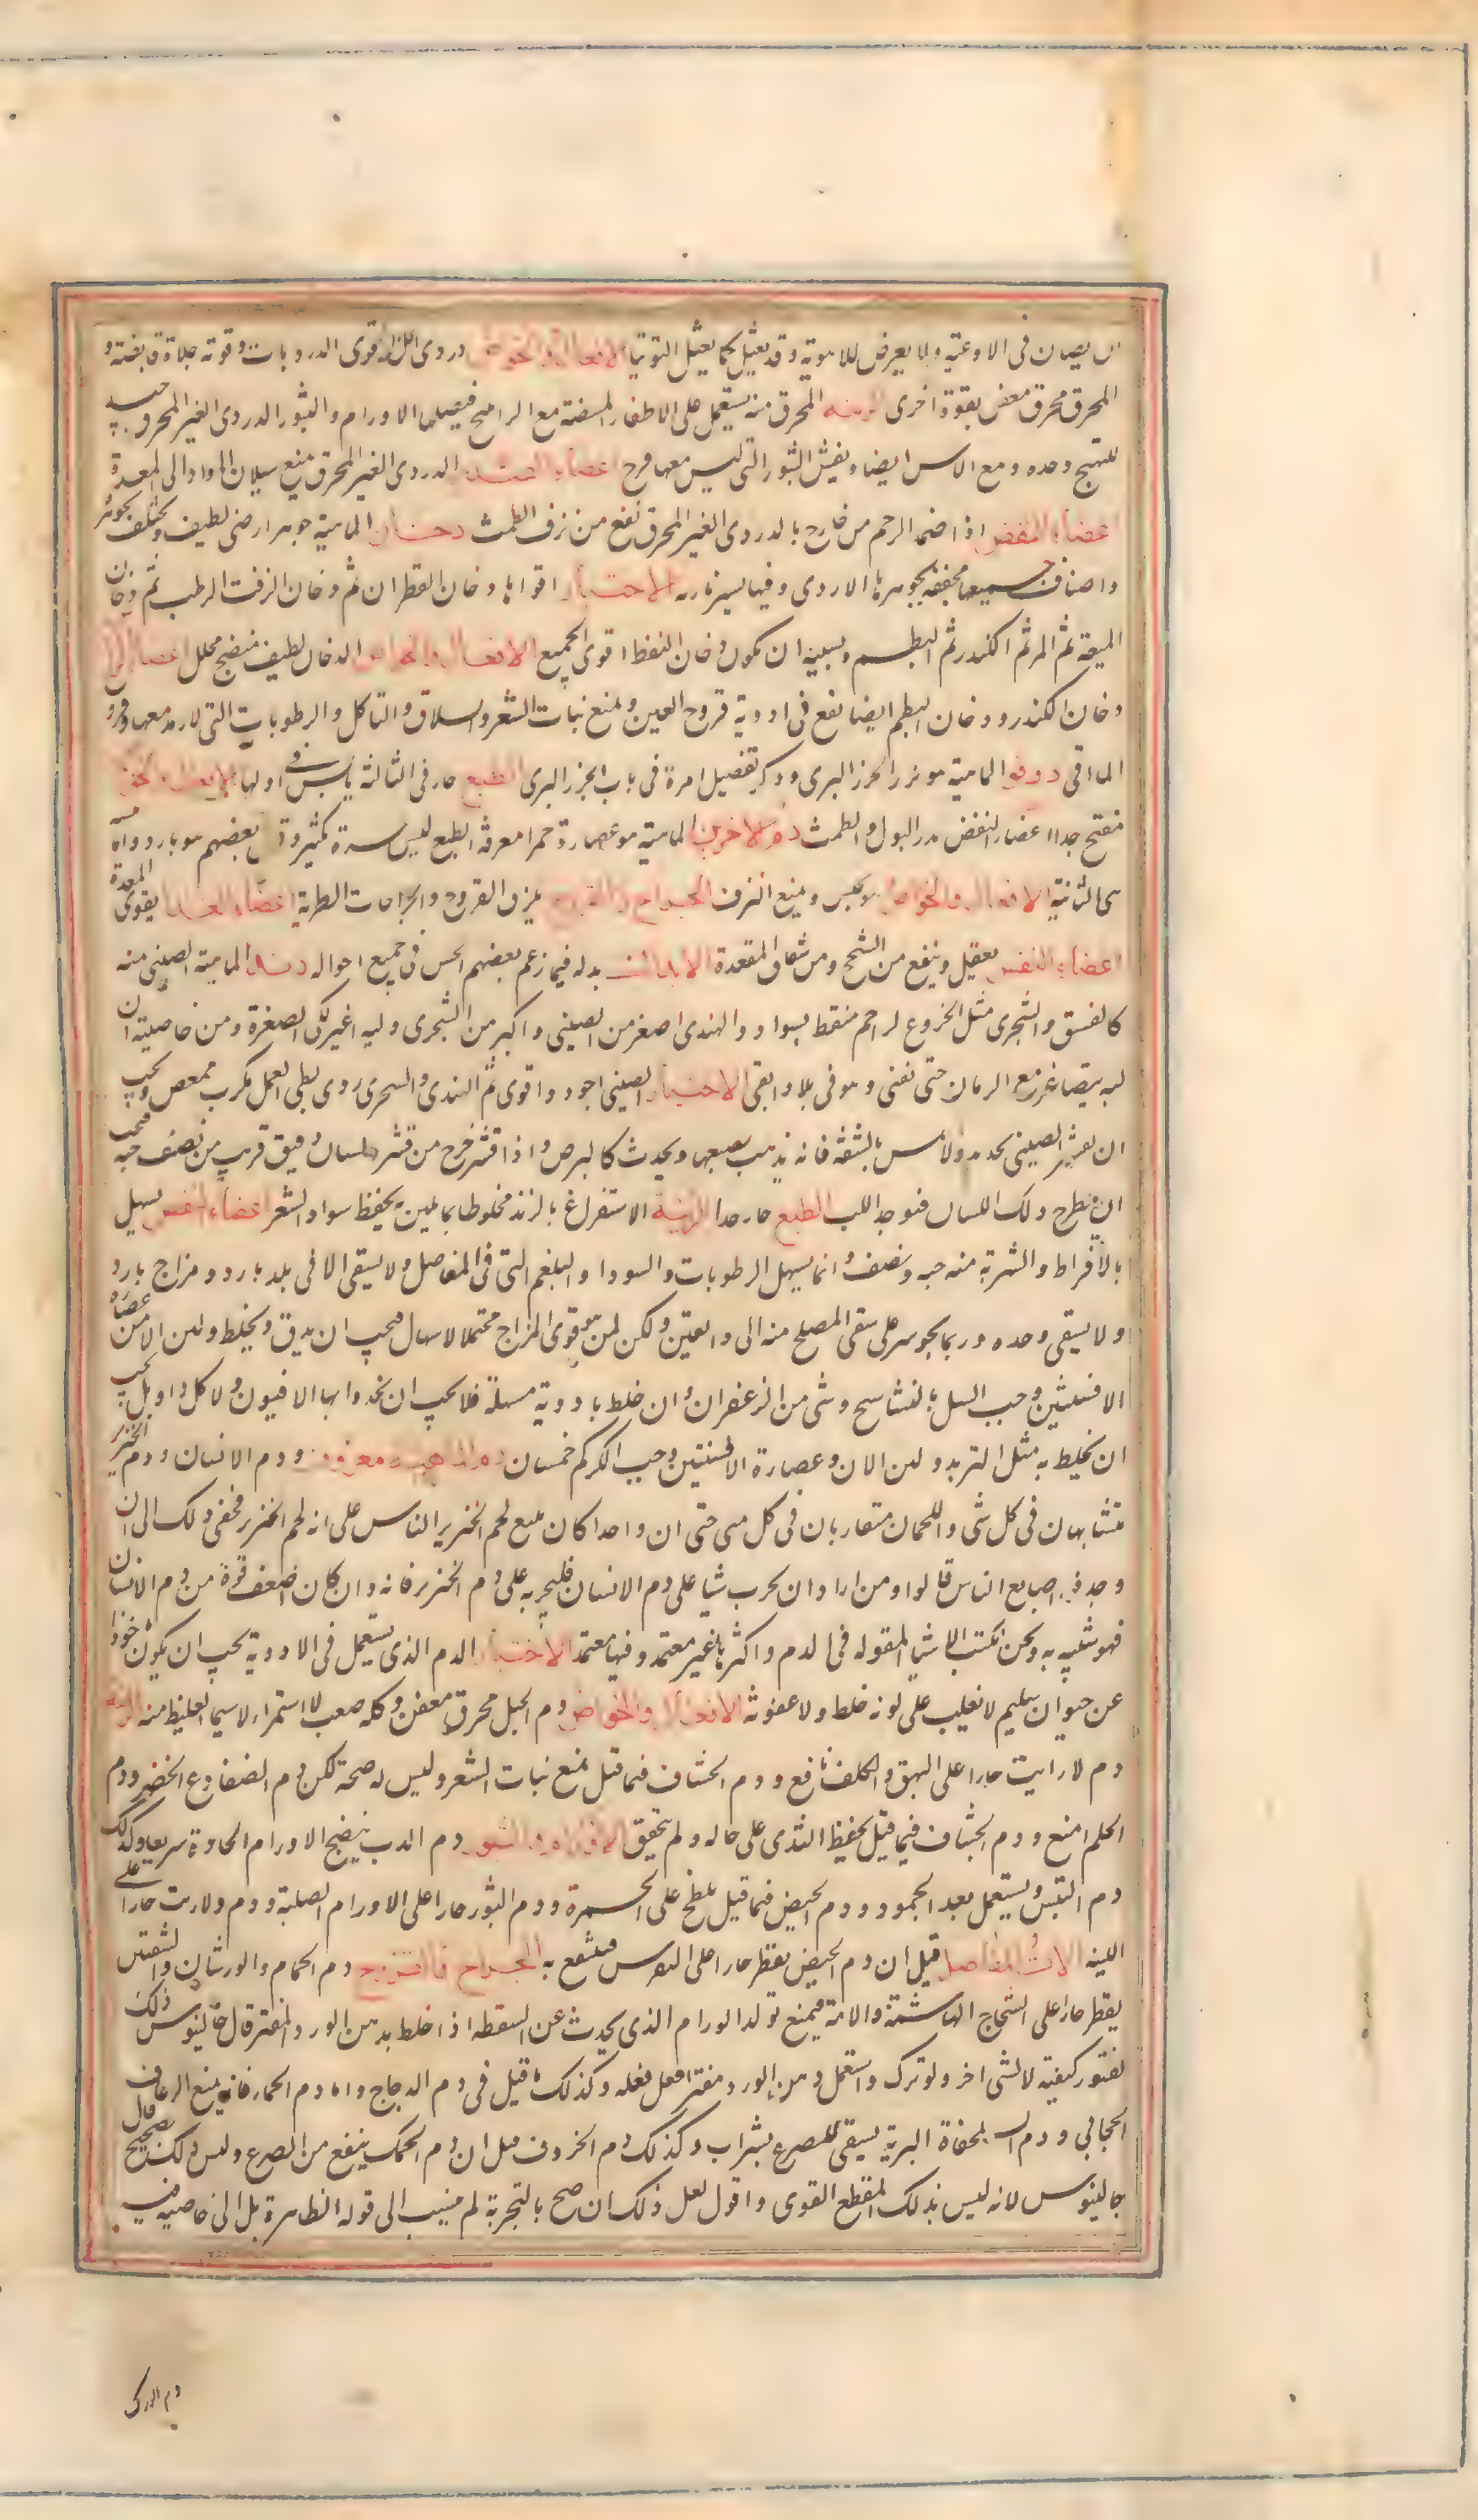 يصان فى الاوعية ولا يعرض للاهوية وقد يغسل كما يغسل التوتيا الافعال والخواص دردى الخل اقوى الدرديات وقوته جلاءة قابضة و
المحرق محرق معفن بقوة اخرى الزينة المحرق منه يستعمل على الاظفار المبيضة مع الراتينج فيصلحها الاورام والبثور الدردى الغير المحرق جيد
للتهيج وحده ومع الاس ايضا ويفش البثور التى ليس معها قرح اعضاء الغذاء الدردى الغير المحرق يمنع سيلان المواد الى المعدة
اعضاء النفض اذا ضمد الرحم من خارج بالدردى الغير المحرق نفع من نزف الطمث دخان الماهية جوهر ارضى لطيف ويختلف بجوهر
واصنافه جميعها مجففة بجوهرها الارضى وفيها يسير نارية الاختيار اقواها دخان القطران ثم دخان الزفت الرطب ثم دخان
الميعة ثم المر ثم الكندر ثم البطم ويشبه ان يكون دخان النفط اقوى الجميع الافعال والخواص الدخان لطيف منضج محلل اعضاء الراس
دخان الكندر ودخان البطم ايضا نفع فى ادوية قروح العين ويمنع نبات الشعر والسلاق والتاكل والرطوبات التى لا رمد معها وقروح
الماقى دوقو الماهية هو بزر الجزر البرى وذكر تفصيل امره فى باب الجزر البرى الطبع حار فى الثالثة يابس فى اولها الافعال والخواص
مفتح جدا اعضاء النفض مدر البول والطمث دم الاخوين الماهية هو عصارة حمرا معروفة الطبع ليس حره كثير وقال بعضهم هو بارد واما
فى الثانية الافعال والخواص هو يحبس ويمنع النزف الجراح والقروح يلزق القروح والجراحات الطرية اعضاء الغذاء يقوى المعدة
اعضاء النفض يعقل وينفع من السحج ومن شقاق المقعدة الابدال بدله فيما زعم بعضهم الخس فى جميع احواله دند الماهية الصينى منه
كالفستق والشجرى مثل الخروع احمر منقط بسواد والهندى اصغر من الصينى واكبر من الشجرى ولبه اغبر الى الصفرة ومن خاصيته ان
لبه يتصاغر مع الزمان حتى يفنى وهو فى بلاده ابقى الاختيار الصينى اجود واقوى ثم الهندى والشجرى ردى بطى العمل مكرب ممغص ويجب
ان يقشر الصينى بحديد ولا يمس بالشفة فانه يذهب بصبغها ويحدث كالبرص واذا قشر خرج من قشره لسان دقيق قريب من نصف حبة فيجب
ان يطرح ذلك اللسان فيوجد اللب الطبع حار جدا الزينة الاستفراغ بالدند مخلوطا بما يلين به يحفظ سواد الشعر اعضاء النفض يسهل
بالافراط والشربة منه حبة ونصف وانما يسهل الرطوبات والسودا والبلغم التى فى المفاصل ولا يسقى الا فى بلد بارد ومزاج بارد
ولا يسقى وحده وربما يجوسر على سقى المصلح منه الى دانقين ولكن لمن هو قوى المزاج محتملا لاسهال فيجب ان يدق ويخلط ولبن الاتن عصارة
الافسنتين وحب السل بالنشاستج وشى من الزعفران وان خلط بادوية مسهلة فلا يجب ان يخد وابها الافيون ولا كل دا وبل يجب
ان يخلط به مثل التربد ولبن الاتن وعصارة الافسنتين وحب الكركم خمسان دم الماهية معروف ودم الانسان ودم الخنزير
متشابهان فى كل شى واللحمان متقاربان فى كل شى حتى ان واحدا كان يبيع لحم الخنزير الناس على انه لحم الخنزير فخفى ذلك الى ان
وجد فيه اصابع الناس قالوا ومن اراد ان يجرب شيا على دم الانسان فليجربه على دم الخنزير فانه وان كان اضعف قوة من دم الانسان
فهو شبيه به ونحن نكتب الاشيا المقوله فى الدم واكثرها غير معتمد وفيها معتمد الاختيار الدم الذى يستعمل فى الادوية يجب ان يكون ماخوذا
عن حيوان سليم لا يغلب على لونه خلط ولا عفونة الافعال والخواص دم الجبل محرق معفن وكله صعب الاستمراء لاسيما الغليظ منه الزينة
دم الارانب حارا على البهق والكلف نافع ودم الخشاف فيما قيل يمنع نبات الشعر وليس له صحة لكن دم الضفادع الخضر ودم
الحلم امنع ودم الخشاف فيما قيل يحفظ الثدى على حاله ولم يتحقق الاورام والبثور دم الدب ينضج الاورام الحادة سريعا وكذلك
دم التيس ويستعمل بعد الجمود ودم الحيض فيما قيل يلطخ على الحمرة ودم الثور حارا على الاورام الصلبة ودم ولارنب حارا على
اللينه الات المفاصل قيل ان دم الحيض يقطر حارا على النقرس فينتفع به الجراح والقروح دم الحمام والورشان والشفنين
يقطر حارا على الشجاج الهاشمة والامة فيمنع تولد الورام الذى يحدث عن السقطه اذا خلط بدهن الورد المفتر قال جالينوس ذلك
لفتور كيفيته لا لشى اخر ولو ترك واستعمل دهن الورد مفترا فعل فعله وكذلك ما قيل فى دم الدجاج واما دم الحمار فانه يمنع الرعاف
الحجابى ودم السلحفاة البرية يسقى للصرع بشراب وكذلك دم الخروف قيل ان دم الحمل ينفع من الصرع وليس ذلك بصحيح قال
جالينوس لانه ليس بذلك المقطع القوى واقول لعل ذلك ان صح بالتجربة لم ينسب الى قوته الظاهرة بل الى خاصيته فيه
دم الدرك